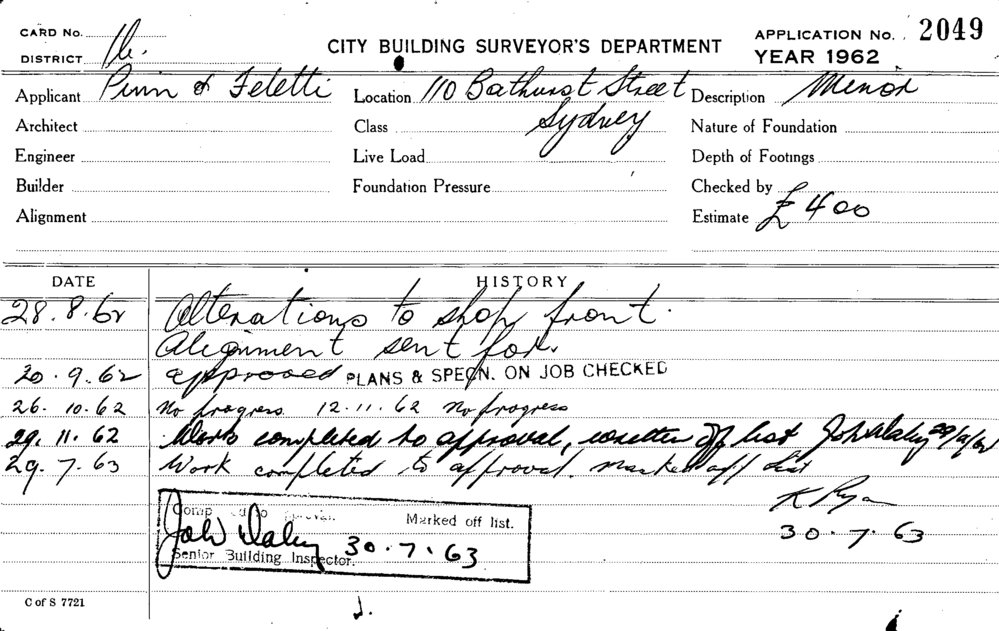 CARD No.
DISTRICT
CITY BUILDING SURVEYOR'S DEPARTMENT
APPLICATION No. 2049
YEAR 1962
Applicant Pinn & Feletti
Location 110 Bathurst Street
Sydney
Description Minor
Architect
Class
Nature of Foundation
Engineer
Live Load
Depth of Footings
Builder
Foundation Pressure
Checked by
Alignment
Estimate £400
DATE HISTORY
28.8.62 Alterations to shop front.
Alignment sent for.
20.9.62 approved PLANS & SPECN. ON JOB CHECKED
26.10.62 No progress. 12.11.62 No progress
29.11.62 Work completed to approval, off list John Daley
29.7.63 Work completed to approval. marked off list
K Ryan
30.7.63
Marked off list.
John Daley 30.7.63
Senior Building Inspector.
C of S 7721